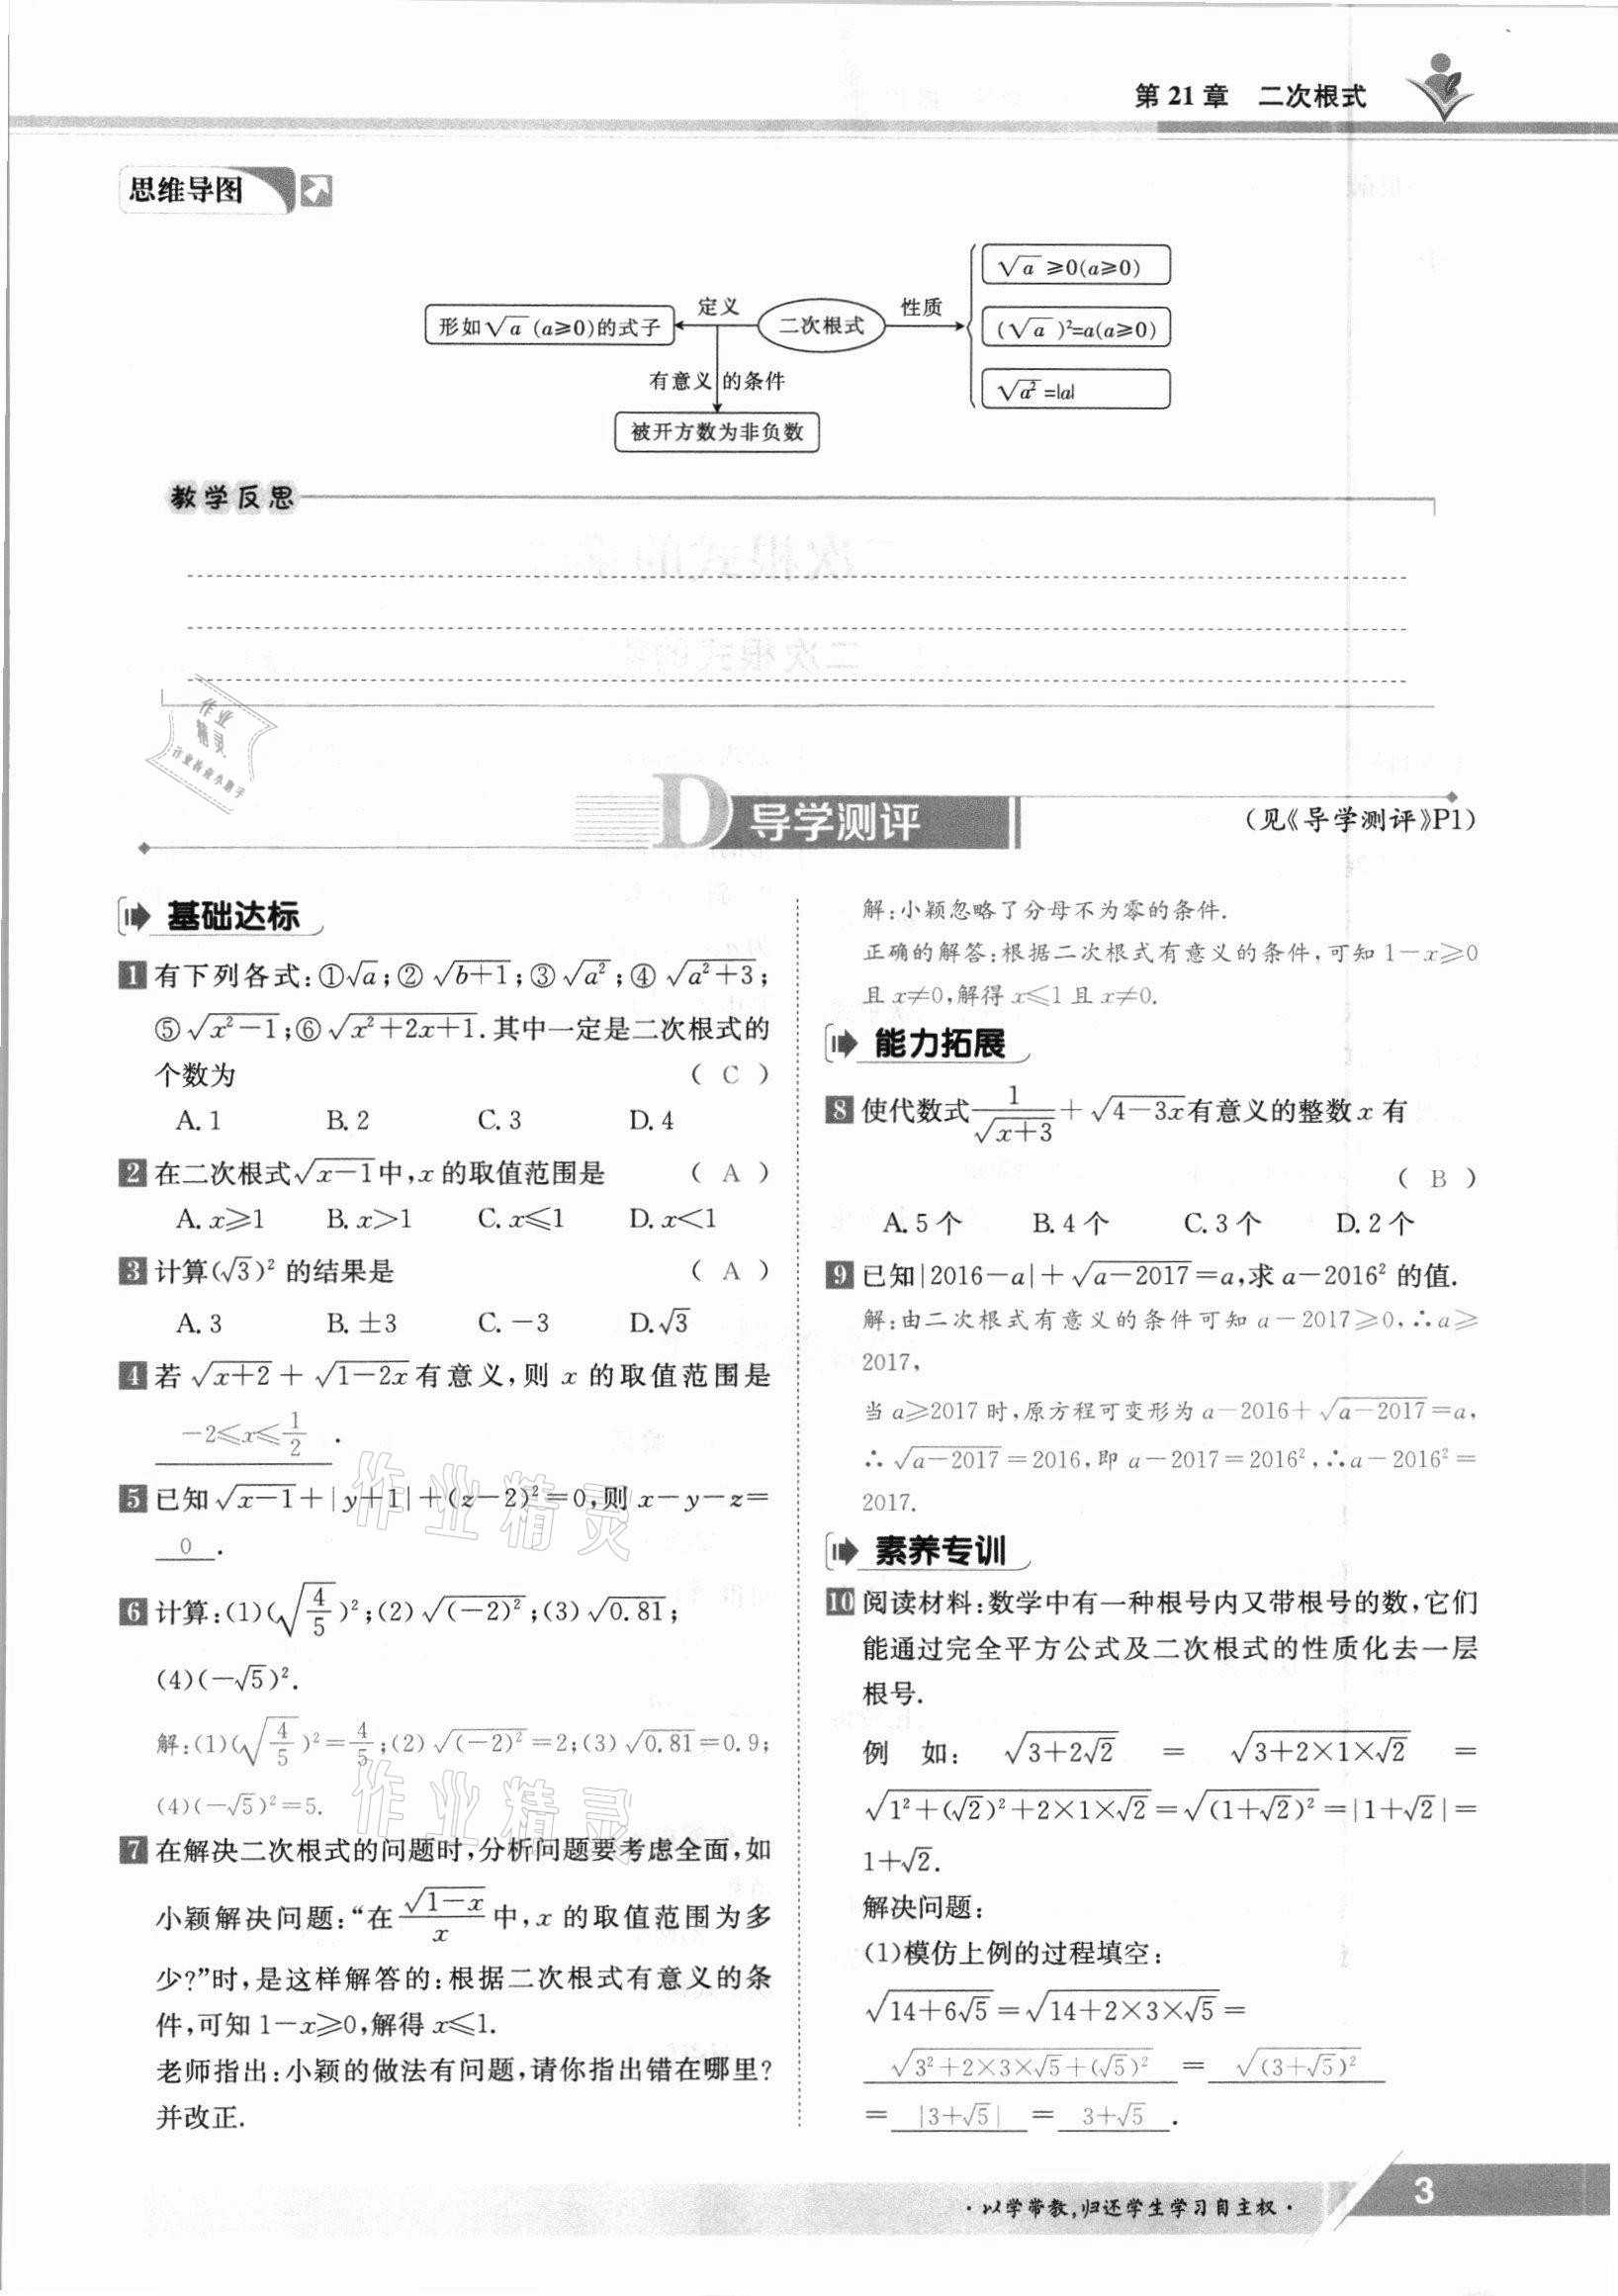 第 21 章　二次根式
思维导图
形如√a (a≥0)的式子
定义
二次根式
性质
√a ≥0(a≥0)
(√a )²=a(a≥0)
√a² =|a|
有意义的条件
被开方数为非负数
教学反思
作业
精灵
作业检查小助手
D 导学测评
(见《导学测评》P1)
基础达标
1 有下列各式:①√a;② √(b+1);③ √(a²);④ √(a²+3);
⑤√(x²-1);⑥√(x²+2x+1).其中一定是二次根式的
个数为 ( C )
A. 1 B. 2 C. 3 D. 4
2 在二次根式√(x-1)中,x 的取值范围是 ( A )
A. x≥1 B. x>1 C. x≤1 D. x<1
3 计算(√3)² 的结果是 ( A )
A. 3 B. ±3 C. -3 D. √3
4 若 √(x+2) + √(1-2x) 有意义,则 x 的取值范围是
-2≤x≤1/2 .
5 已知√(x-1)+|y+1|+(z-2)²=0,则 x-y-z=
0 .
6 计算:(1)(√(4/5))²;(2)√((-2)²);(3)√0.81;
(4)(-√5)².
解:(1)(√(4/5))²=4/5;(2)√((-2)²)=2;(3)√0.81=0.9;
(4)(-√5)²=5.
7 在解决二次根式的问题时,分析问题要考虑全面,如
小颖解决问题:“在√(1-x)/x中,x 的取值范围为多
少?”时,是这样解答的:根据二次根式有意义的条
件,可知 1-x≥0,解得 x≤1.
老师指出:小颖的做法有问题,请你指出错在哪里?
并改正.
解:小颖忽略了分母不为零的条件.
正确的解答:根据二次根式有意义的条件,可知 1-x≥0
且 x≠0,解得 x≤1 且 x≠0.
能力拓展
8 使代数式1/√(x+3)+√(4-3x)有意义的整数 x 有
( B )
A. 5 个 B. 4 个 C. 3 个 D. 2 个
9 已知|2016-a|+√(a-2017)=a,求 a-2016² 的值.
解:由二次根式有意义的条件可知 a-2017≥0,∴a≥
2017,
当 a≥2017 时,原方程可变形为 a-2016+√(a-2017)=a,
∴√(a-2017)=2016,即 a-2017=2016²,∴a-2016²=
2017.
素养专训
10 阅读材料:数学中有一种根号内又带根号的数,它们
能通过完全平方公式及二次根式的性质化去一层
根号.
例如: √(3+2√2) = √(3+2×1×√2) =
√(1²+(√2)²+2×1×√2)=√((1+√2)²)=|1+√2|=
1+√2.
解决问题:
(1)模仿上例的过程填空:
√(14+6√5)=√(14+2×3×√5)=
√(3²+2×3×√5+(√5)²) = √((3+√5)²)
= |3+√5| = 3+√5 .
作业精灵
作业精灵
·以学带教,归还学生学习自主权·
3